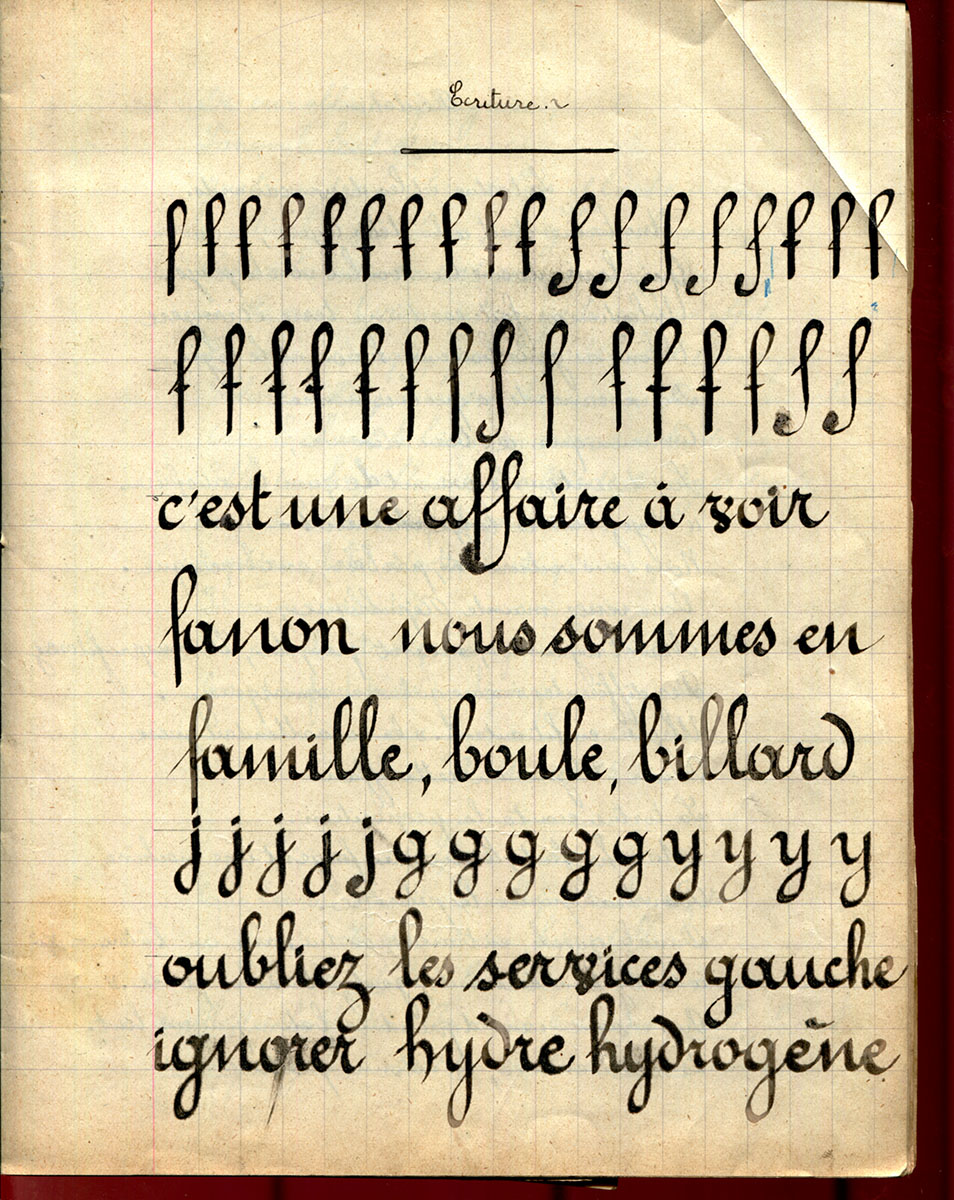 Ecriture.
f f f f f f f f f f f f f f f f f f
f f f f f f f f f f f f f f f
c'est une affaire à voir
fanon nous sommes en
famille, boule, billard
j j j j j g g g g g y y y y
oubliez les services gauche
ignorer hydre hydrogène